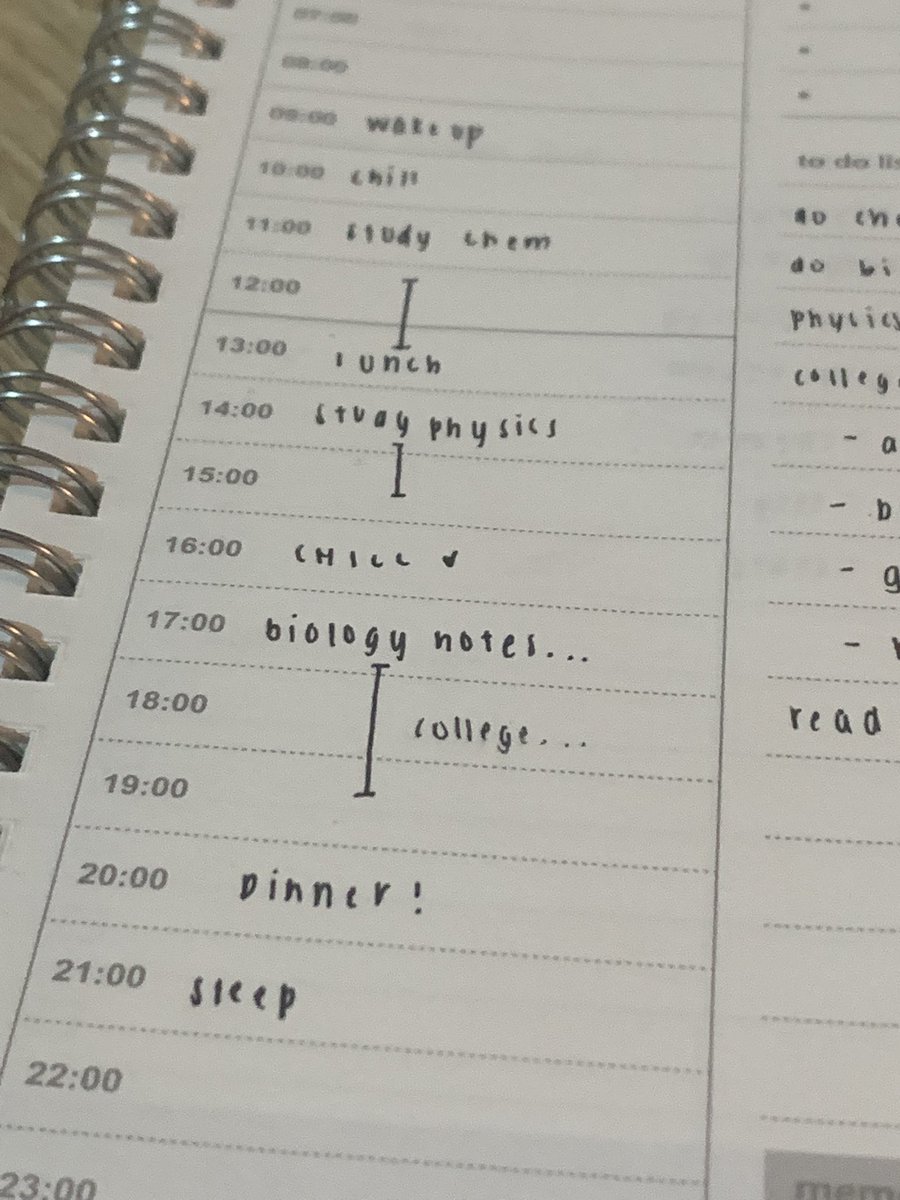 07:00
08:00
09:00 wake up
10:00 chill
11:00 study chem
12:00
13:00 lunch
14:00 study physics
15:00
16:00 CHILL
17:00 biology notes...
18:00 college...
19:00
20:00 Dinner!
21:00 sleep
22:00
23:00
to do
do
do
physics
- a
- b
- g
-
read